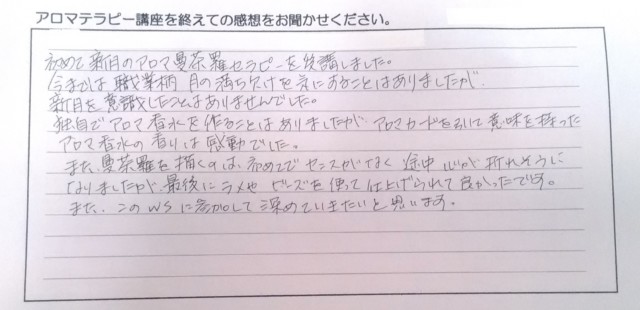 アロマテラピー講座を終えての感想をお聞かせください。
初めて新月のアロマ曼荼羅セラピーを受講しました。
今までは職業柄 月の満ち欠けを気にすることはありましたが、
新月を意識したことはありませんでした。
独自でアロマ香水を作ることはありましたが、アロマカードを引いて意味を採った
アロマ香水の香りは感動でした。
また、曼荼羅を描くのは、初めてでセンスがなく 途中 心が折れそうに
なりましたが、最後にラメや ビーズを使って仕上げられて良かったです。
また、このWSに参加して深めていきたいと思います。